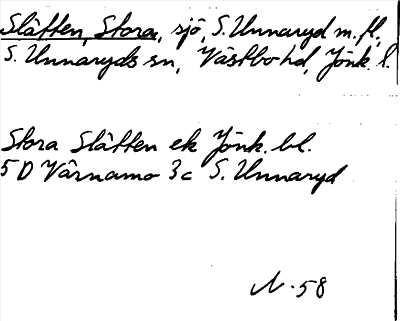 Slätten, Stora, sjö, S. Unnaryd m. fl.
S. Unnaryds sn, Västbo hd, Jönk. l.
Stora Slätten ek Jönk. bl.
5 D Värnamo 3 c S. Unnaryd
N. 58